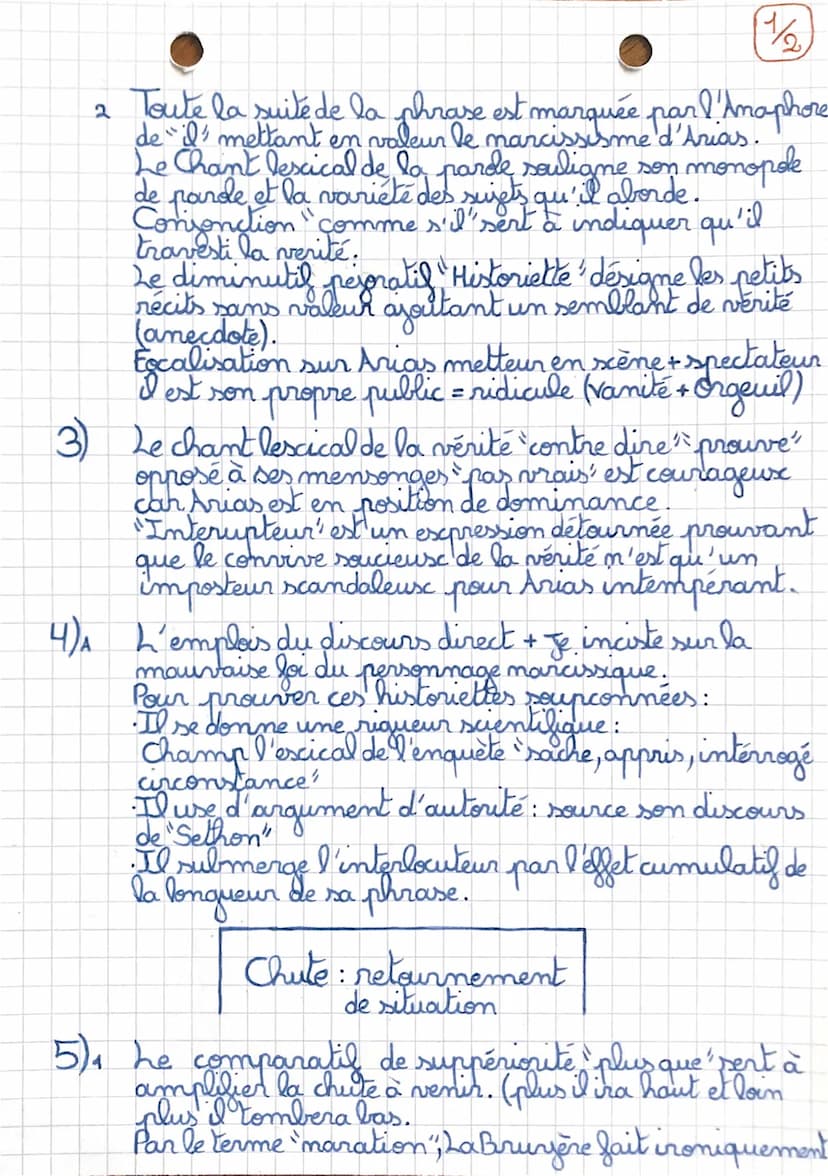 1/2
2 Toute la suite de la phrase est marquée par l'Anaphore
de "il" mettant en valeur le narcissisme d'Arias.
Le Chant lescical de la parole souligne son monopole
de parole et la variété des sujets qu'il aborde.
Conjonction "comme s'il" sert à indiquer qu'il
travesti la verité.
Le diminutif pejoratif "Historiette" désigne les petits
récits sans valeur ajoutant un semblant de vérité
(anecdote).
Focalisation sur Arias metteur en scène + spectateur
il est son propre public = ridicule (Vanité + Orgeuil)
3) Le chant lescical de la vérité "contre dire" "prouve"
opposé à ses mensonges "pas vrais" est courageux
car Arias est en position de dominance.
"Interupteur" est un expression détournée prouvant
que le convive soucieux de la vérité n'est qu'un
imposteur scandaleux pour Arias intempérant.
4)A L'emplois du discours direct + Je inciste sur la
mauvaise foi du personnage narcissique.
Pour prouver ces historiettes soupconnées :
·Il se donne une rigueur scientifique :
Champ l'escical de l'enquète "sache, appris, intérrogé
circonstance"
·Il use d'argument d'autorité : source son discours
de "Sethon"
·Il submerge l'interlocuteur par l'éffet cumulatif de
la longueur de sa phrase.
Chute : retournement
de situation
5)1 Le comparatif de suppériorité "plus que" sert à
amplifier la chute à venir. (plus il ira haut et loin
plus il tombera bas.
Par le terme "naration", La Bruyère fait ironiquement